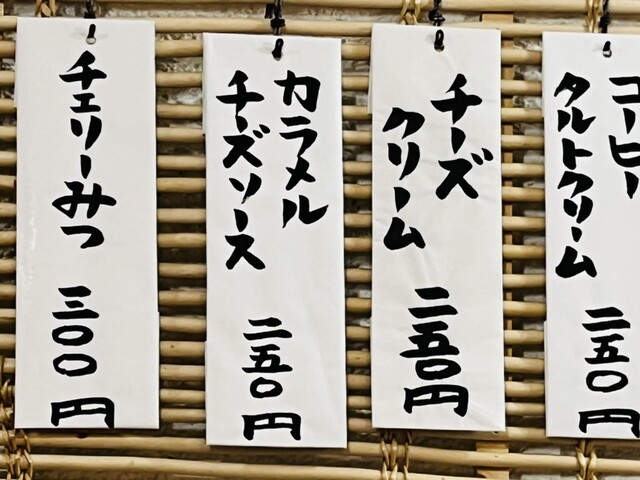 コーヒー
タルトクリーム
二五〇円
チーズ
クリーム
二五〇円
カラメル
チーズソース
二五〇円
チェリーみつ
三〇〇円